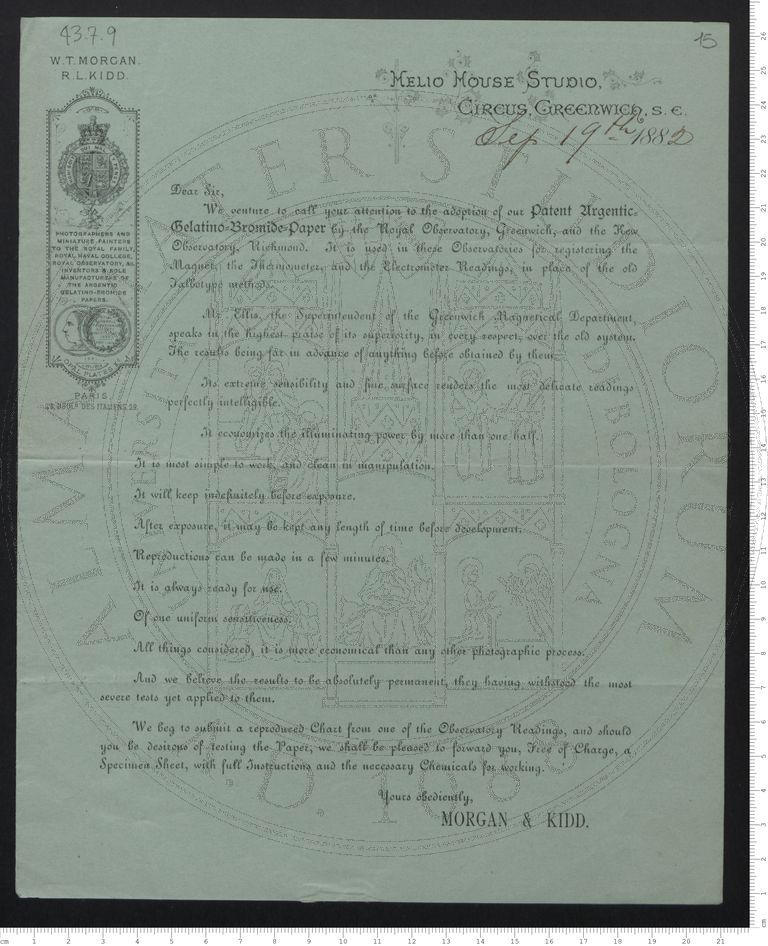 43.7.9
15
W. T. MORGAN.
R. L. KIDD.
HELIO HOUSE STUDIO,
CIRCUS, GREENWICH, S. E.
Sep 19th 1882
PHOTOGRAPHERS AND
MINIATURE PAINTERS
TO THE ROYAL FAMILY,
ROYAL NAVAL COLLEGE,
ROYAL OBSERVATORY, &c
INVENTORS & SOLE
MANUFACTURERS OF
THE ARGENTIC
GELATINO-BROMIDE
PAPERS.
PARIS,
BOULD DES ITALIENS
Dear Sir,
We venture to call your attention to the adoption of our Patent Argentic-
Gelatino-Bromide-Paper by the Royal Observatory, Greenwich, and the Kew
Observatory, Richmond. It is used in these Observatories for registering the
Magnet, the Thermometer, and the Electrometer Readings, in place of the old
Talbotype methods.
Mr. Ellis, the Superintendent of the Greenwich Magnetical Department,
speaks in the highest praise of its superiority, in every respect, over the old system.
The results being far in advance of anything before obtained by them.
Its extreme sensibility and fine surface renders the most delicate readings
perfectly intelligible.
It economizes the illuminating power by more than one half.
It is most simple to work, and clean in manipulation.
It will keep indefinitely before exposure.
After exposure, it may be kept any length of time before development.
Reproductions can be made in a few minutes.
It is always ready for use.
Of one uniform sensitiveness.
All things considered, it is more economical than any other photographic process.
And we believe the results to be absolutely permanent, they having withstood the most
severe tests yet applied to them.
We beg to submit a reproduced Chart from one of the Observatory Readings, and should
you be desirous of testing the Paper, we shall be pleased to forward you, Free of Charge, a
Specimen Sheet, with full Instructions and the necessary Chemicals for working.
Yours obediently,
MORGAN & KIDD.